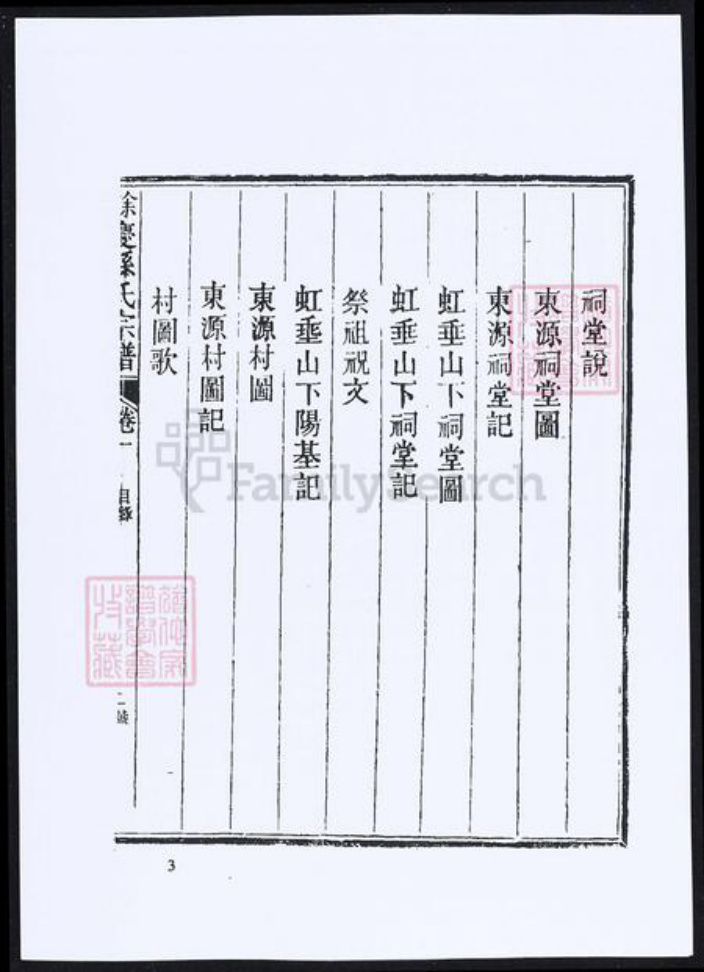 祠堂說
東源祠堂圖
東源祠堂記
虹垂山下祠堂圖
虹垂山下祠堂記
祭祖祝文
虹垂山下陽基記
東源村圖
東源村圖記
村圖歌
餘慶孫氏宗譜 卷一 目錄
3
FamilySearch